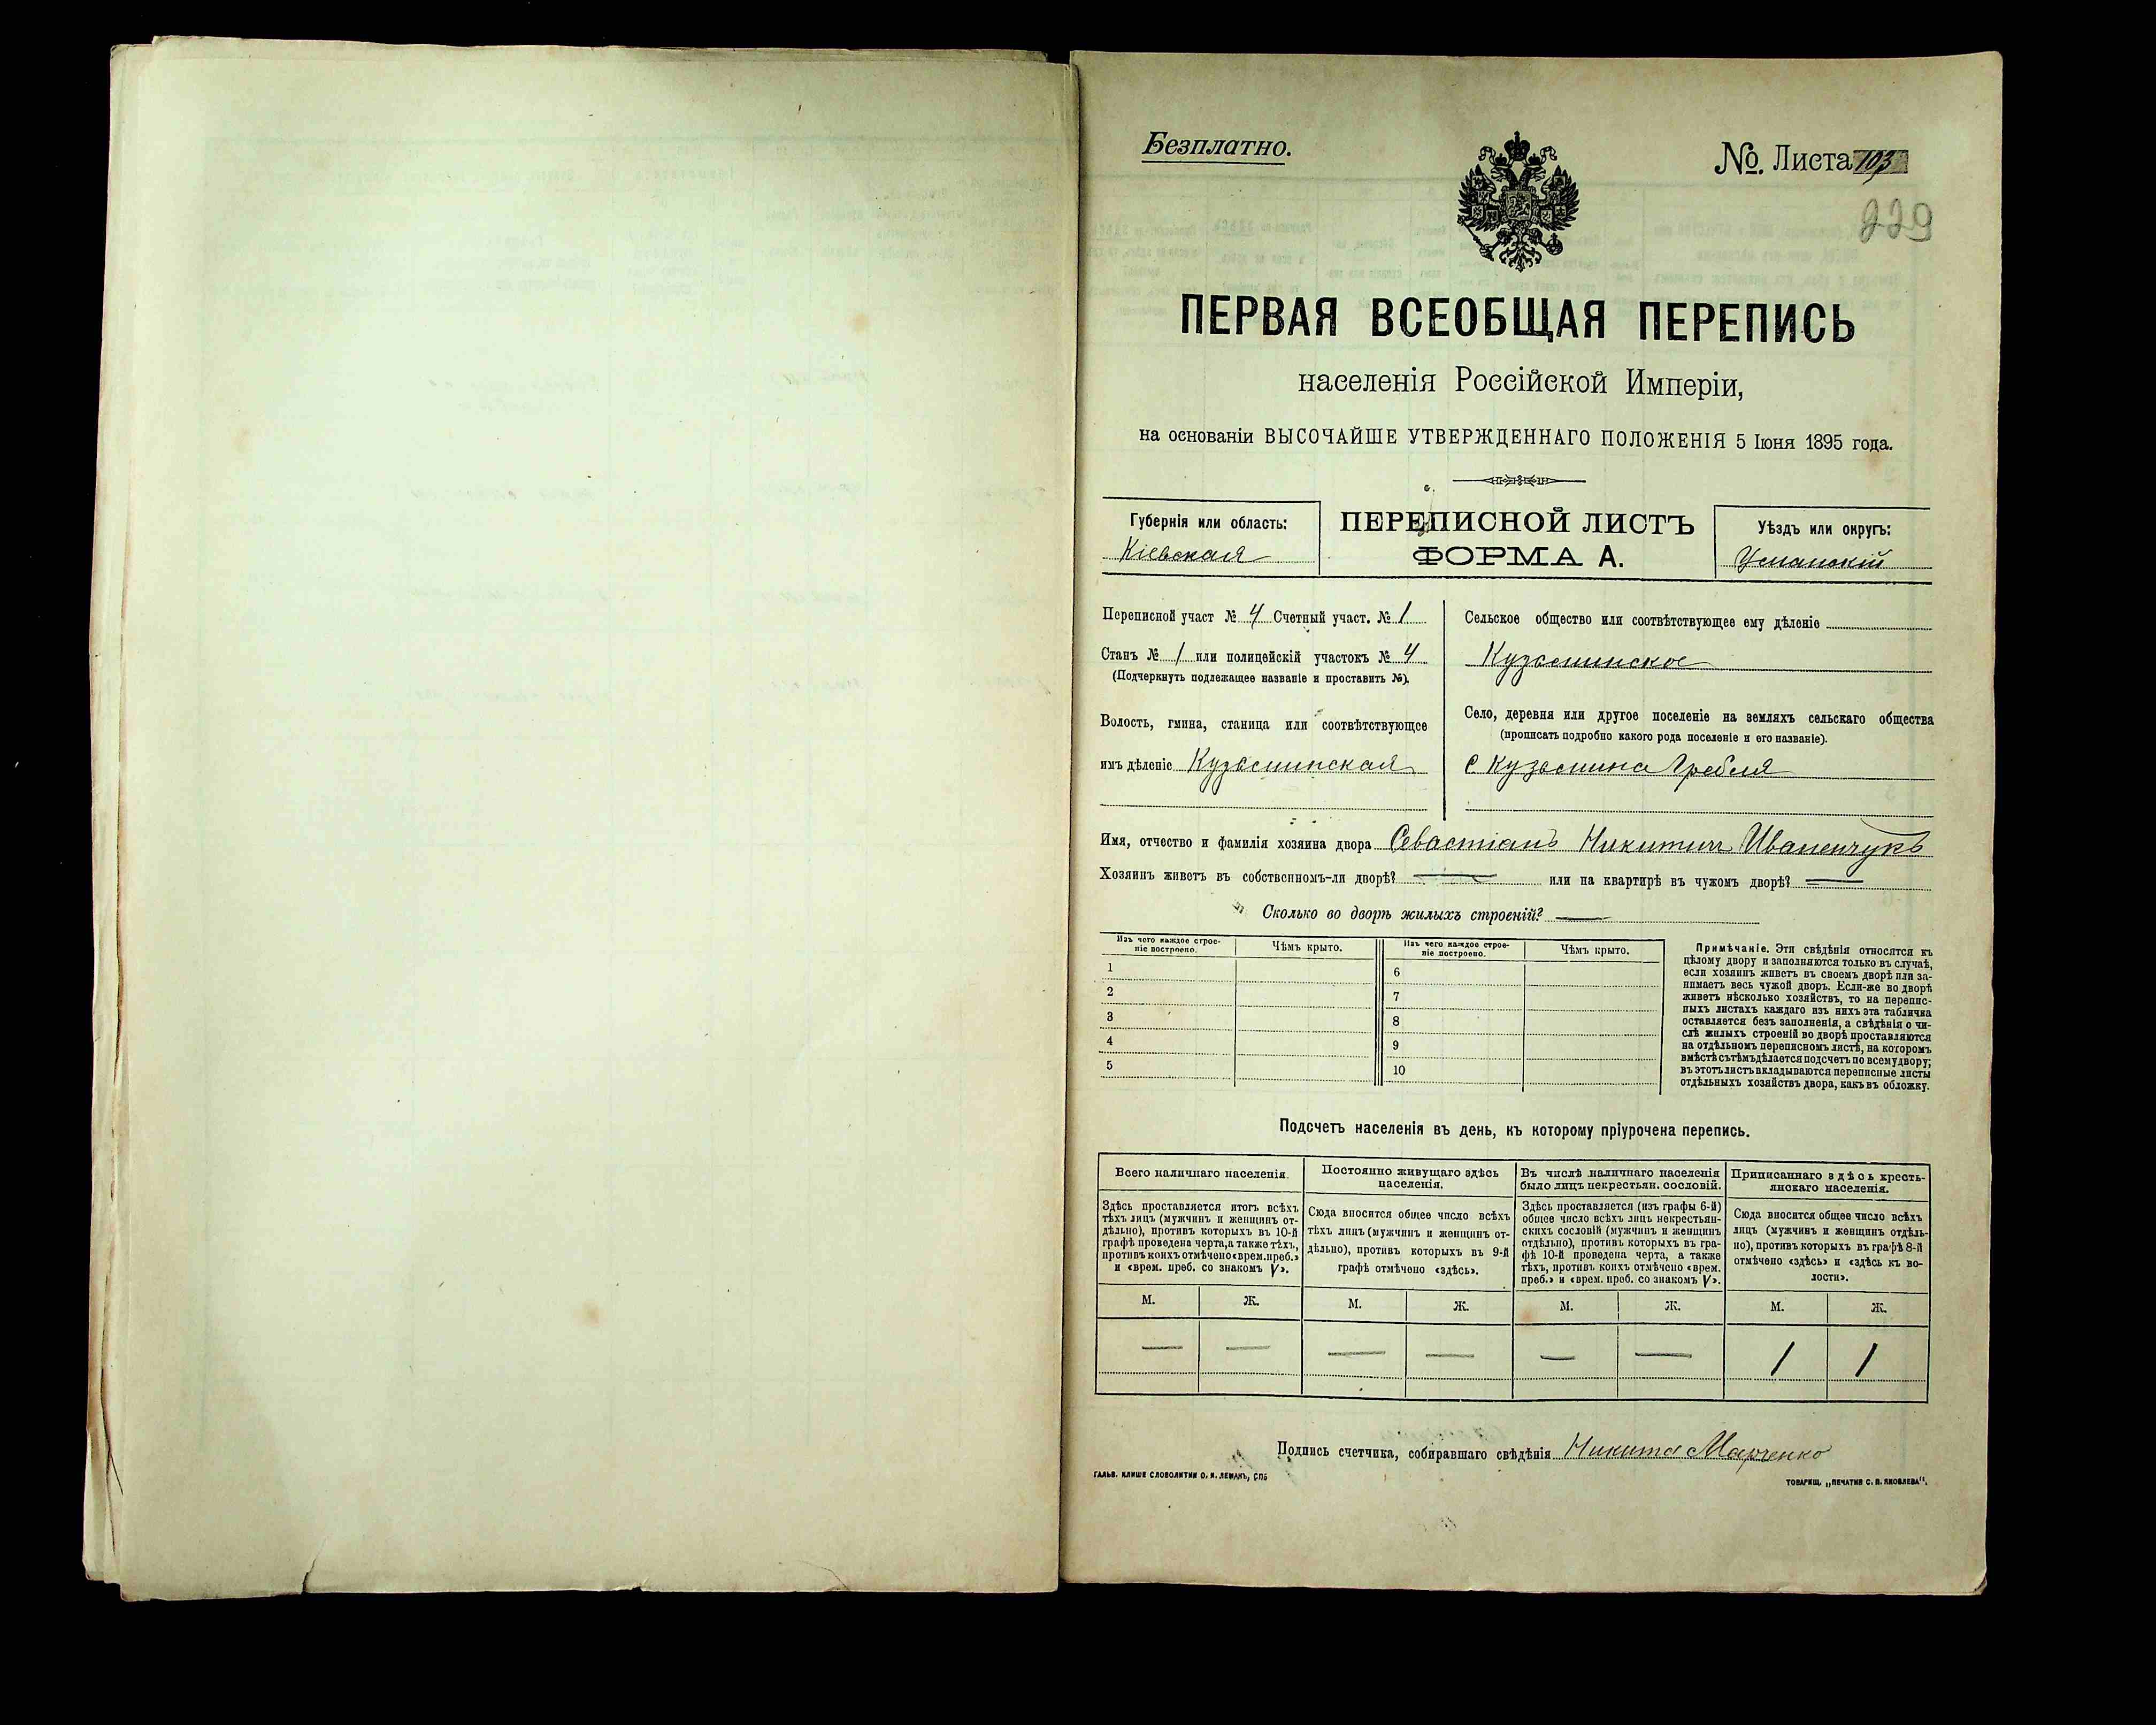 Безплатно.
№ Листа 103
229
ПЕРВАЯ ВСЕОБЩАЯ ПЕРЕПИСЬ
населенія Россійской Имперіи,
на основаніи ВЫСОЧАЙШЕ УТВЕРЖДЕННАГО ПОЛОЖЕНІЯ 5 Іюня 1895 года.
Губернія или область:
Кіевская
ПЕРЕПИСНОЙ ЛИСТЪ
ФОРМА А.
Уѣздъ или округъ:
Уманскій
Переписной участ № 4 Счетный участ. № 1
Станъ № 1 или полицейскій участокъ № 4
(Подчеркнуть подлежащее названіе и проставить №).
Волость, гмина, станица или соотвѣтствующее
имъ дѣленіе Кузьминская
Сельское общество или соотвѣтствующее ему дѣленіе
Кузьминское
Село, деревня или другое поселеніе на земляхъ сельскаго общества
(прописать подробно какого рода поселеніе и его названіе).
с Кузьмина Гребля
Имя, отчество и фамилія хозяина двора Севастіанъ Никитич Иваненчукъ
Хозяинъ живетъ въ собственномъ-ли дворѣ? — или на квартирѣ въ чужомъ дворѣ? —
Сколько во дворѣ жилыхъ строеній? —
Изъ чего каждое строе-
ніе построено.
Чѣмъ крыто.
Изъ чего каждое строе-
ніе построено.
Чѣмъ крыто.
1
2
3
4
5
6
7
8
9
10
Примѣчаніе. Эти свѣдѣнія относятся къ
цѣлому двору и заполняются только въ случаѣ,
если хозяинъ живетъ въ своемъ дворѣ или за-
нимаетъ весь чужой дворъ. Если-же во дворѣ
живетъ нѣсколько хозяйствъ, то на перепис-
ныхъ листахъ каждаго изъ нихъ эта табличка
оставляется безъ заполненія, а свѣдѣнія о чи-
слѣ жилыхъ строеній во дворѣ проставляются
на отдѣльномъ переписномъ листѣ, на которомъ
вмѣстѣ съ тѣмъ дѣлается подсчетъ по всему двору;
въ этотъ листъ вкладываются переписные листы
отдѣльныхъ хозяйствъ двора, какъ въ обложку.
Подсчетъ населенія въ день, къ которому пріурочена перепись.
Всего наличнаго населенія.
Здѣсь проставляется итогъ всѣхъ
тѣхъ лицъ (мужчинъ и женщинъ от-
дѣльно), противъ которыхъ въ 10-й
графѣ проведена черта, а также тѣхъ,
противъ коихъ отмѣчено «врем. преб.»
и «врем. преб. со знакомъ V».
М.
Ж.
—
—
Постоянно живущаго здѣсь
населенія.
Сюда вносится общее число всѣхъ
тѣхъ лицъ (мужчинъ и женщинъ от-
дѣльно), противъ которыхъ въ 9-й
графѣ отмѣчено «здѣсь».
М.
Ж.
—
—
Въ числѣ наличнаго населенія
было лицъ некрестьян. сословій.
Здѣсь проставляется (изъ графы 6-й)
общее число всѣхъ лицъ некрестьян-
скихъ сословій (мужчинъ и женщинъ
отдѣльно), противъ которыхъ въ гра-
фѣ 10-й проведена черта, а также
тѣхъ, противъ коихъ отмѣчено «врем.
преб.» и «врем. преб. со знакомъ V».
М.
Ж.
—
—
Приписаннаго здѣсь кресть-
янскаго населенія.
Сюда вносится общее число всѣхъ
лицъ (мужчинъ и женщинъ отдѣль-
но), противъ которыхъ въ графѣ 8-й
отмѣчено «здѣсь» и «здѣсь къ во-
лости».
М.
Ж.
1
1
Подпись счетчика, собиравшаго свѣдѣнія Никита Марченко
ГАЛЬВ. КЛИШЕ СЛОВОЛИТНИ О. И. ЛЕМАНЪ, СПБ
ТОВАРИЩ. „ПЕЧАТНЯ С. П. ЯКОВЛЕВА".